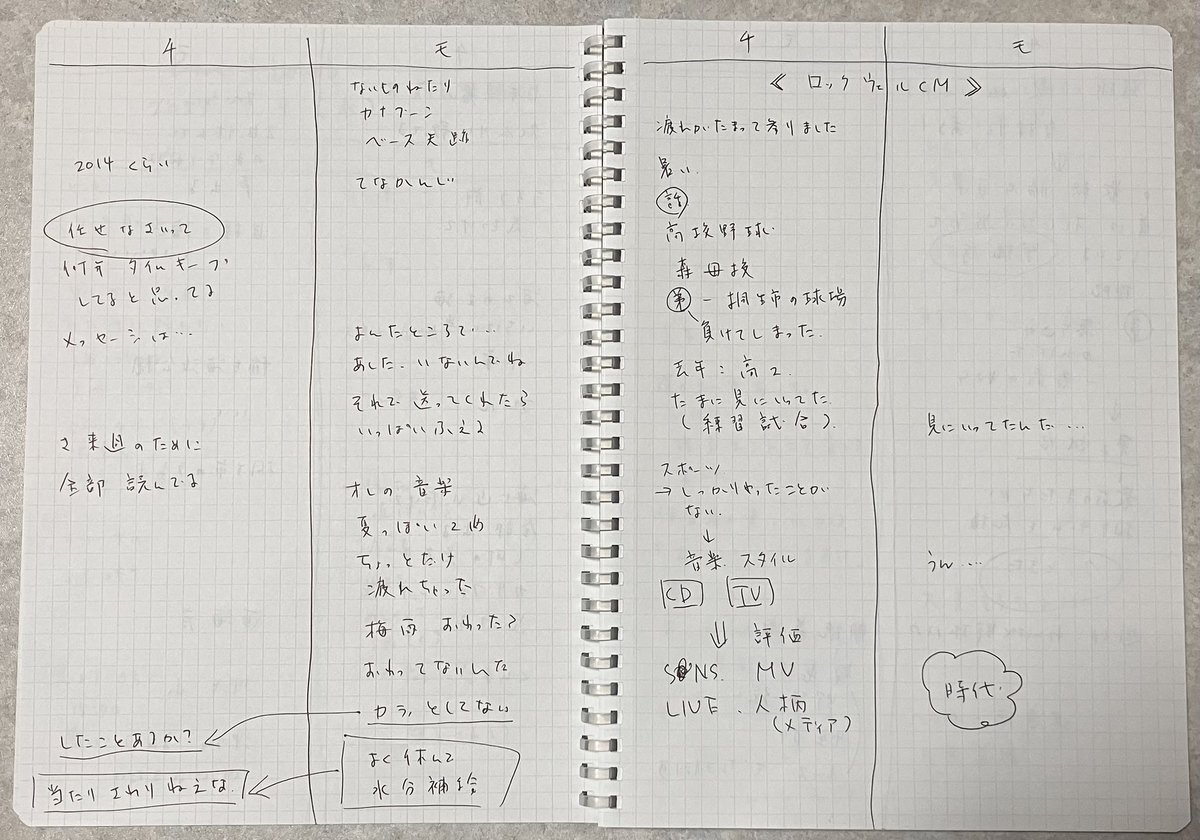 4
モ
ないものねだり
カナブーン
ベース天跡
2014くらい
てなかんじ
任せなさいって
何分 タイムキープ
してると思ってる
メッセージは…
よんだところで…
あした、いないんでね
それで送ってくれたら
いっぱいふえる
さ来週のために
全部 読んでる
オレの音楽
夏っぽい2曲
ちょっとだけ
疲れちゃった
梅雨 おわった?
おわってないんだ
カラッとしてない
したことあるか?
よく休んで
水分補給
当たりさわりねえな
4
モ
《 ロックヴェルCM 》
疲れがたまって参りました
暑い.
許
高校野球
森母校
第一桐姉の球場
負けてしまった.
去年:高2.
たまに見にいってた.
(練習試合).
見にいってたんだ…
スポーツ
→しっかりやったことが
ない.
↓
音楽 スタイル
うん…
CD TV
⇓ 評価
SNS. MV
LIVE、人柄
(メディア)
時代.